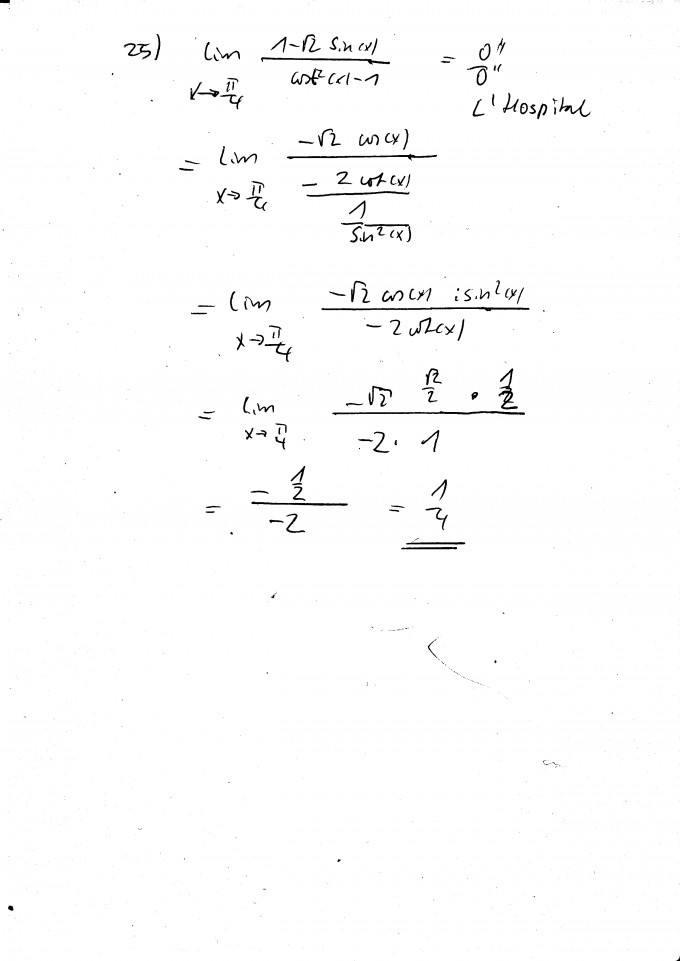 25) lim x→π/4 (1-√2 sin(x))/(cot²(x)-1) = "0/0"
L'Hospital
= lim x→π/4 (-√2 cos(x))/(-2 cot(x)/(1/sin²(x)))
= lim x→π/4 (-√2 cos(x) · sin²(x))/(-2 cot(x))
= lim x→π/4 (-√2 √2/2 · 1/2)/(-2 · 1)
= (-1/2)/(-2) = 1/4